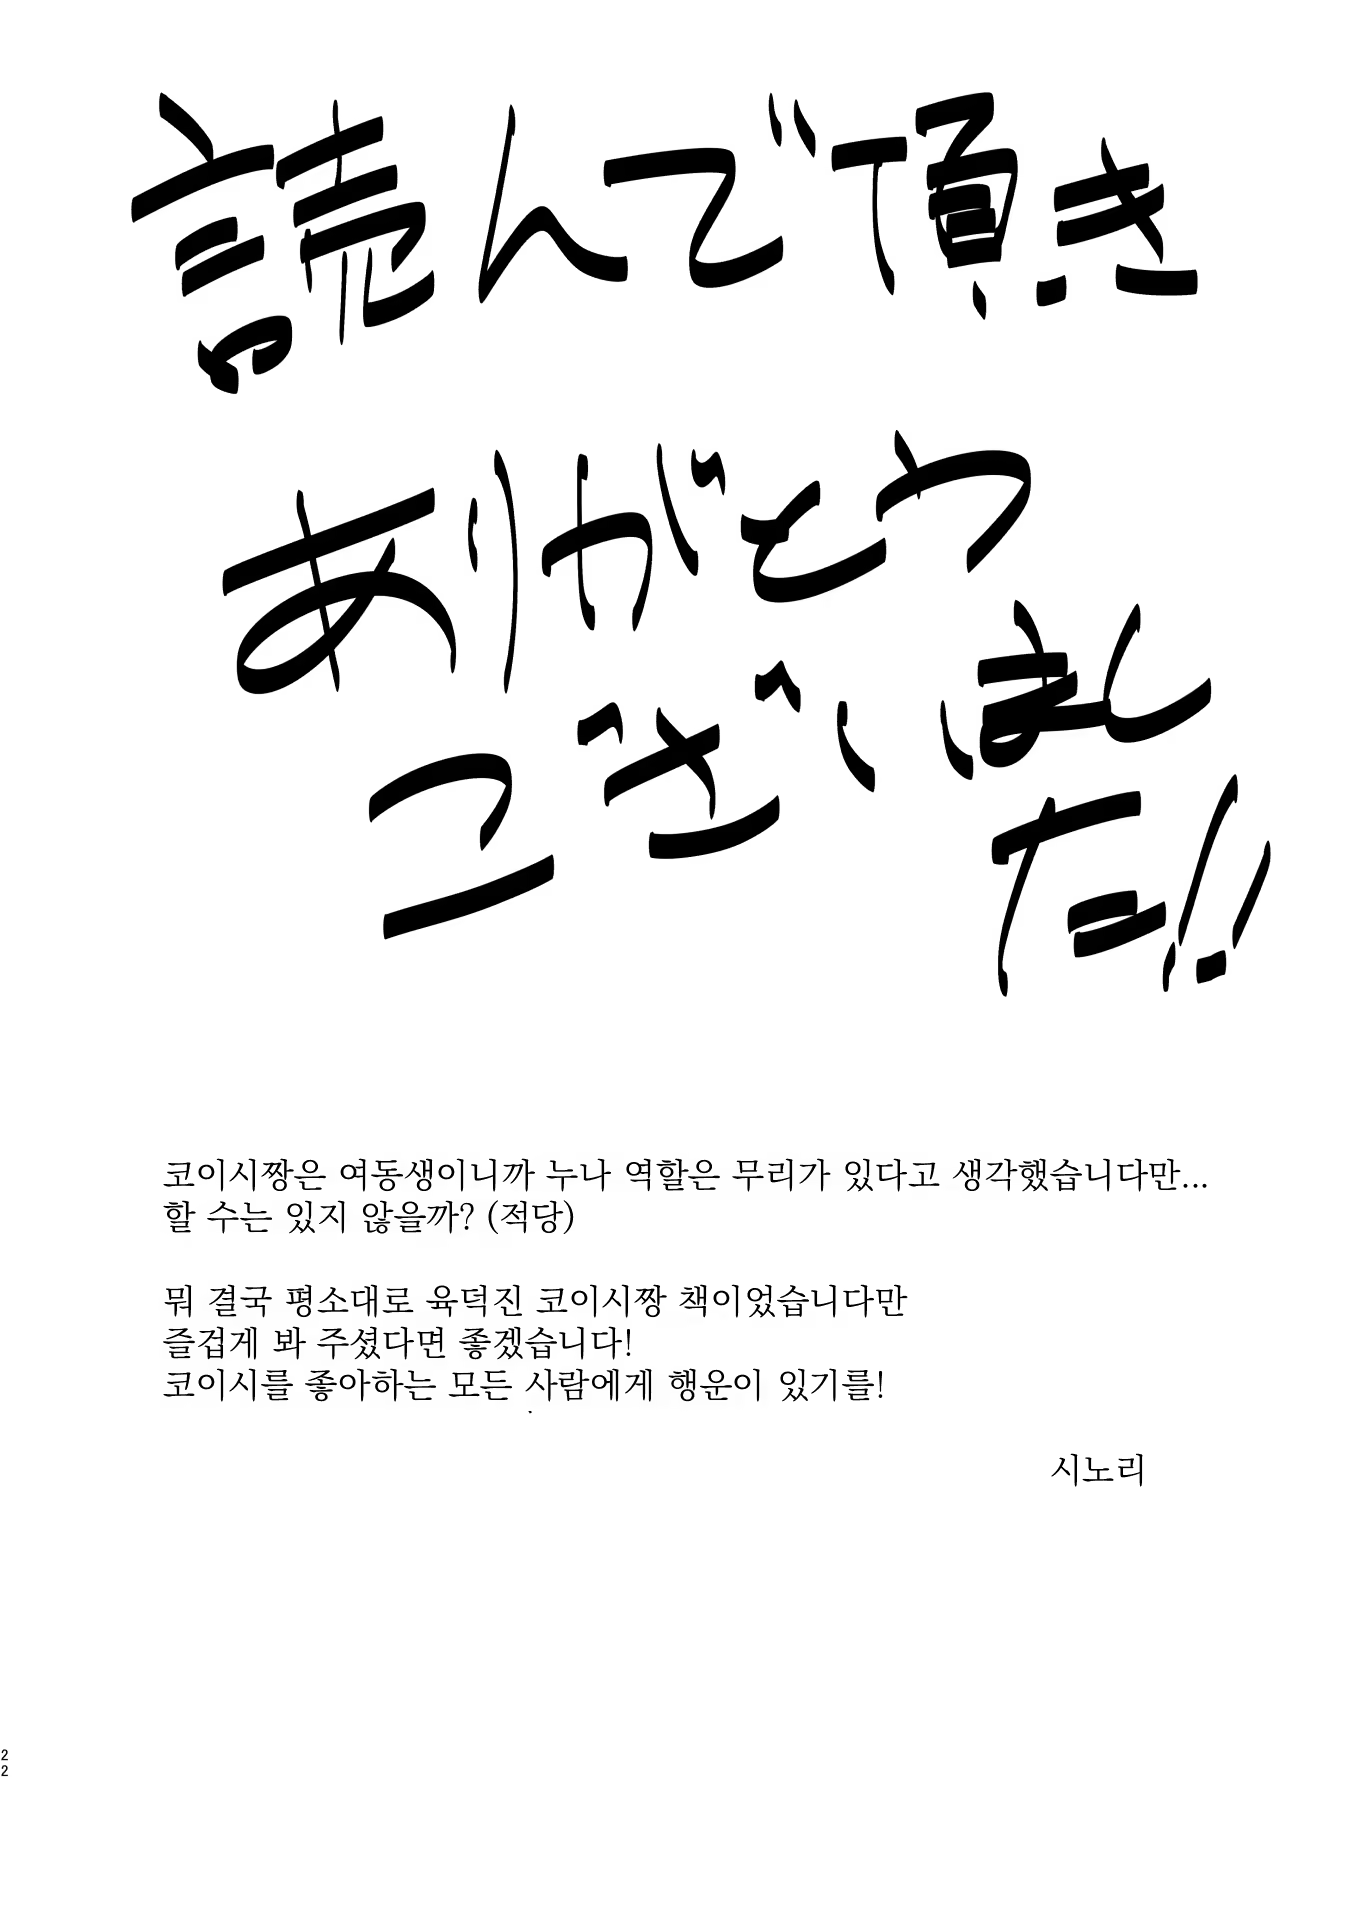 読んで頂き
ありがとう
ございまし
た!!
코이시짱은 여동생이니까 누나 역할은 무리가 있다고 생각했습니다만...
할 수는 있지 않을까? (적당)
뭐 결국 평소대로 육덕진 코이시짱 책이었습니다만
즐겁게 봐 주셨다면 좋겠습니다!
코이시를 좋아하는 모든 사람에게 행운이 있기를!
시노리
22